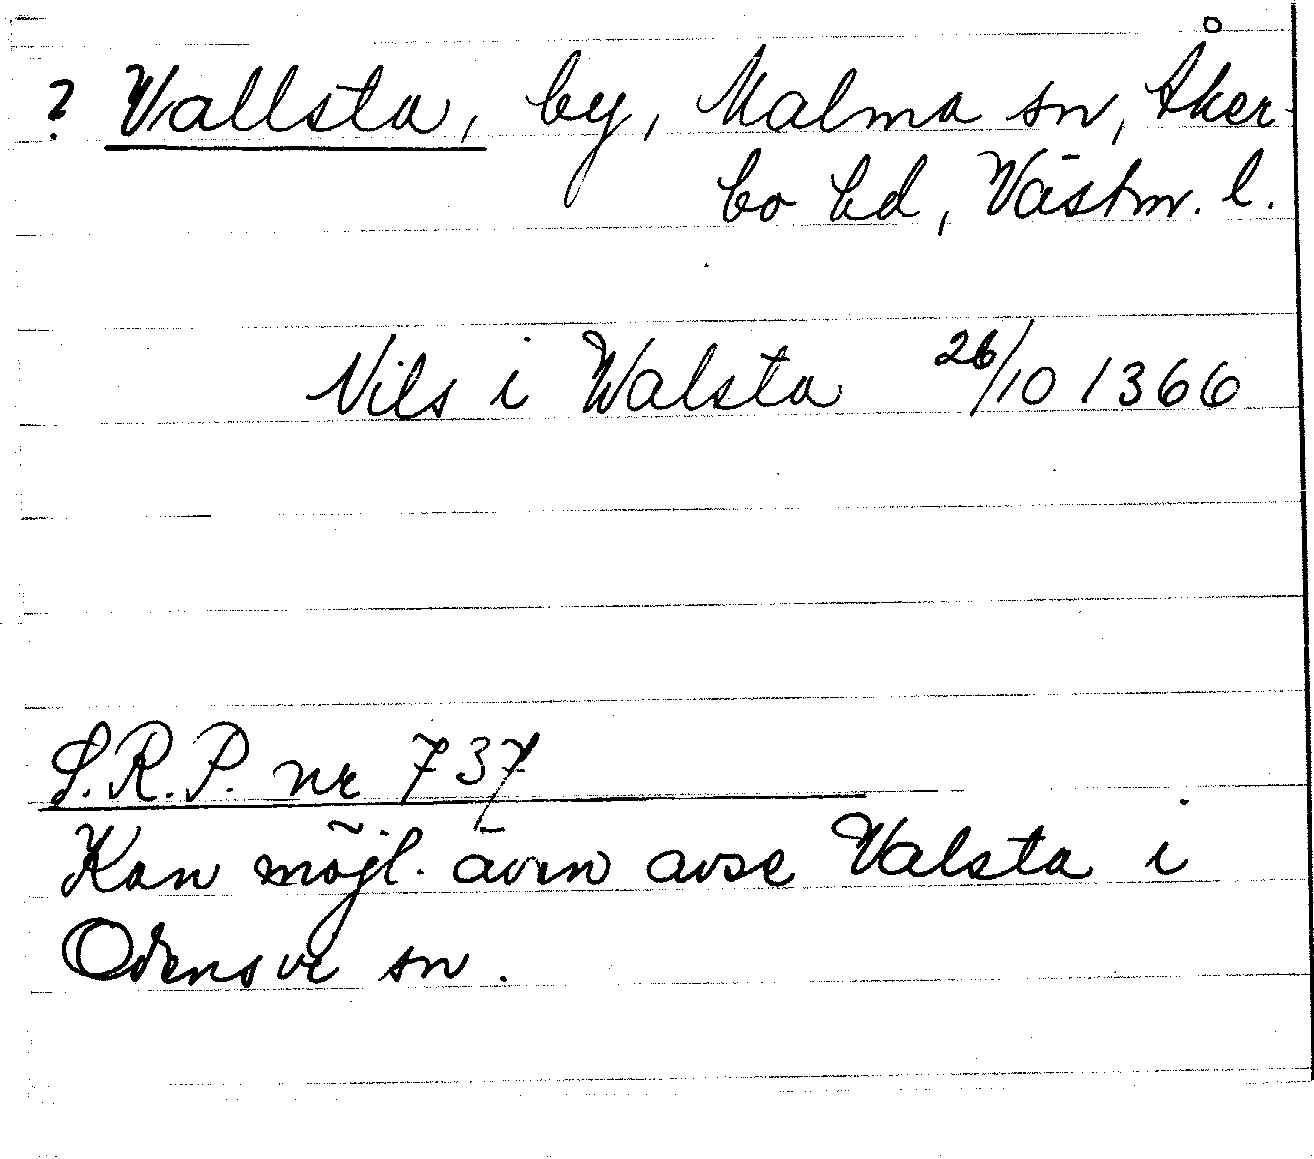 ? Vallsta, by, Malma sn, Åker-
bo hd, Västm. l.
Nils i Walsta 26/10 1366
S.R.P. nr 737
Kan möjl. även avse Valsta i
Odensvi sn.